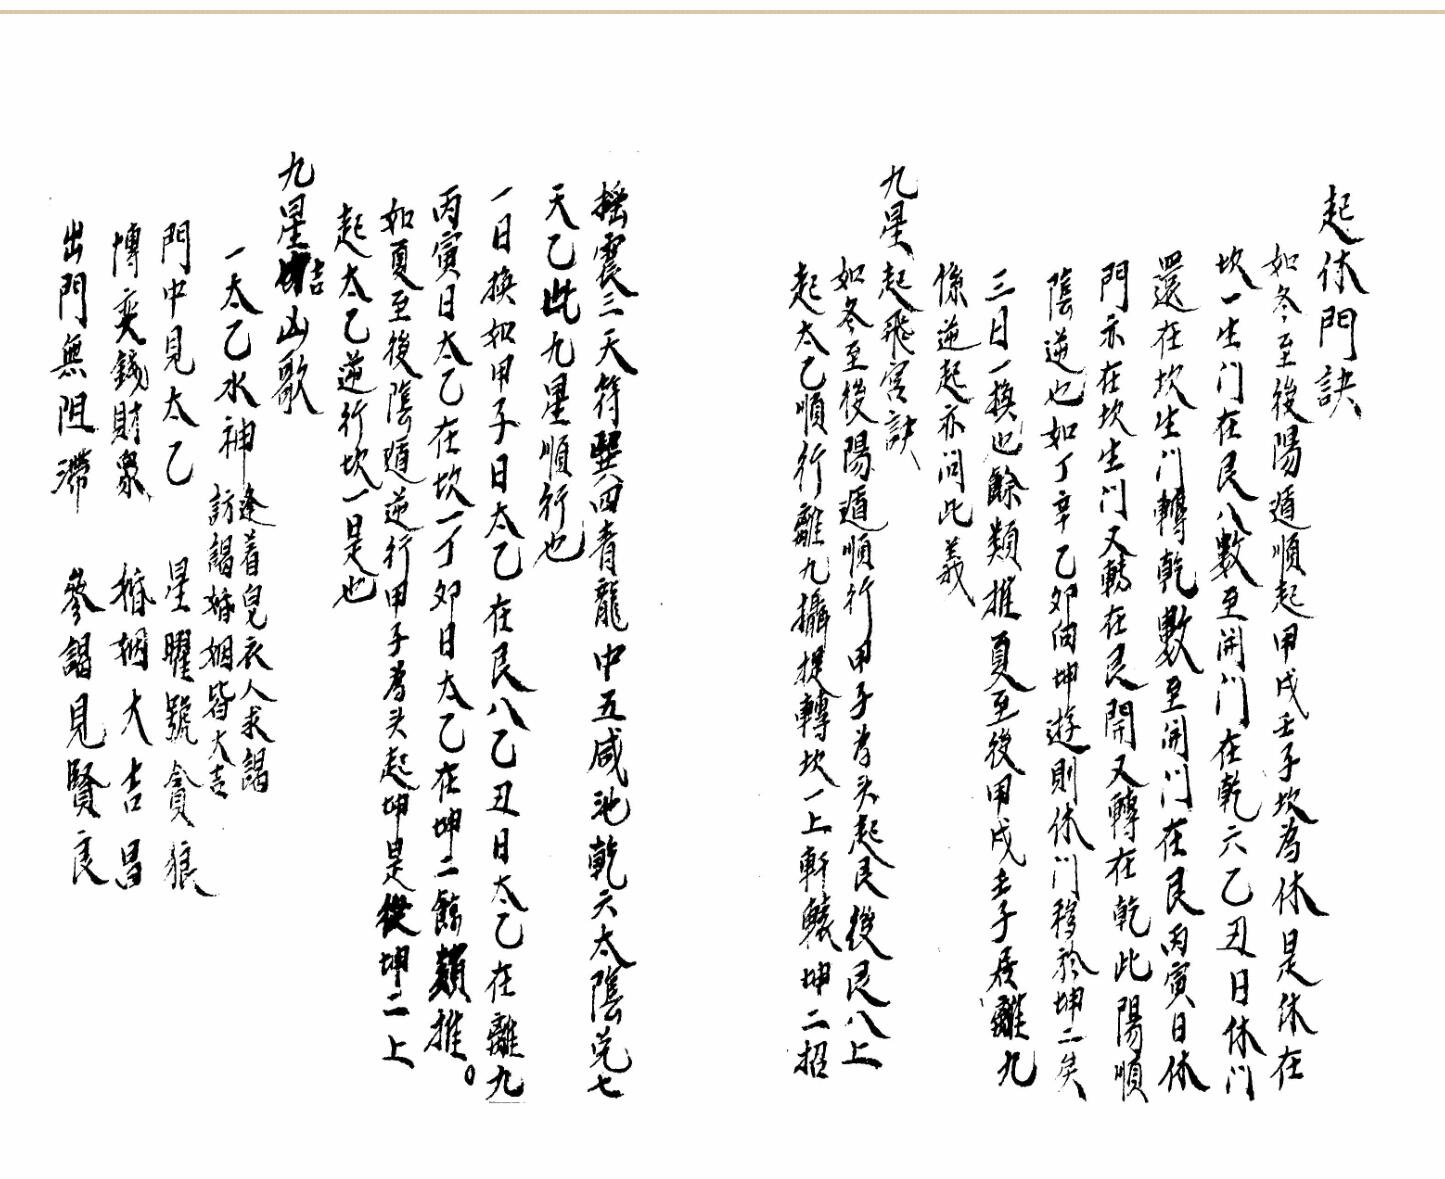 起休門訣
如冬至後陽遁順起甲戊壬子坎為休是休在
坎一生门在艮八數至開门在乾六乙丑日休门
還在坎生门轉乾數至開门在艮丙寅日休
門示在坎生门又轉在艮開又轉在乾此陽順
陰逆也如丁辛乙卯由坤遊則休门移於坤二矣
三日一換也餘類推夏至後甲戊壬子居離九
係逆起亦同此義
九星起飛宮訣
如冬至後陽遁順行甲子為头起艮後艮八上
起太乙順行離九攝提轉坎一上軒轅坤二招
搖震三天符巽四青龍中五咸池乾六太陰兑七
天乙此九星順行也
一日換如甲子日太乙在艮八乙丑日太乙在離九
丙寅日太乙在坎一丁卯日太乙在坤二餘類推。
如夏至後陰遁逆行甲子為头起坤是從坤二上
起太乙逆行坎一是也
九星吉凶歌
一太乙水神 逢着皂衣人求謁
訪謁婚姻皆大吉
門中見太乙 星曜號貪狼
慱奕錢財衆 婚姻大吉昌
出門無阻滯 參謁見賢良